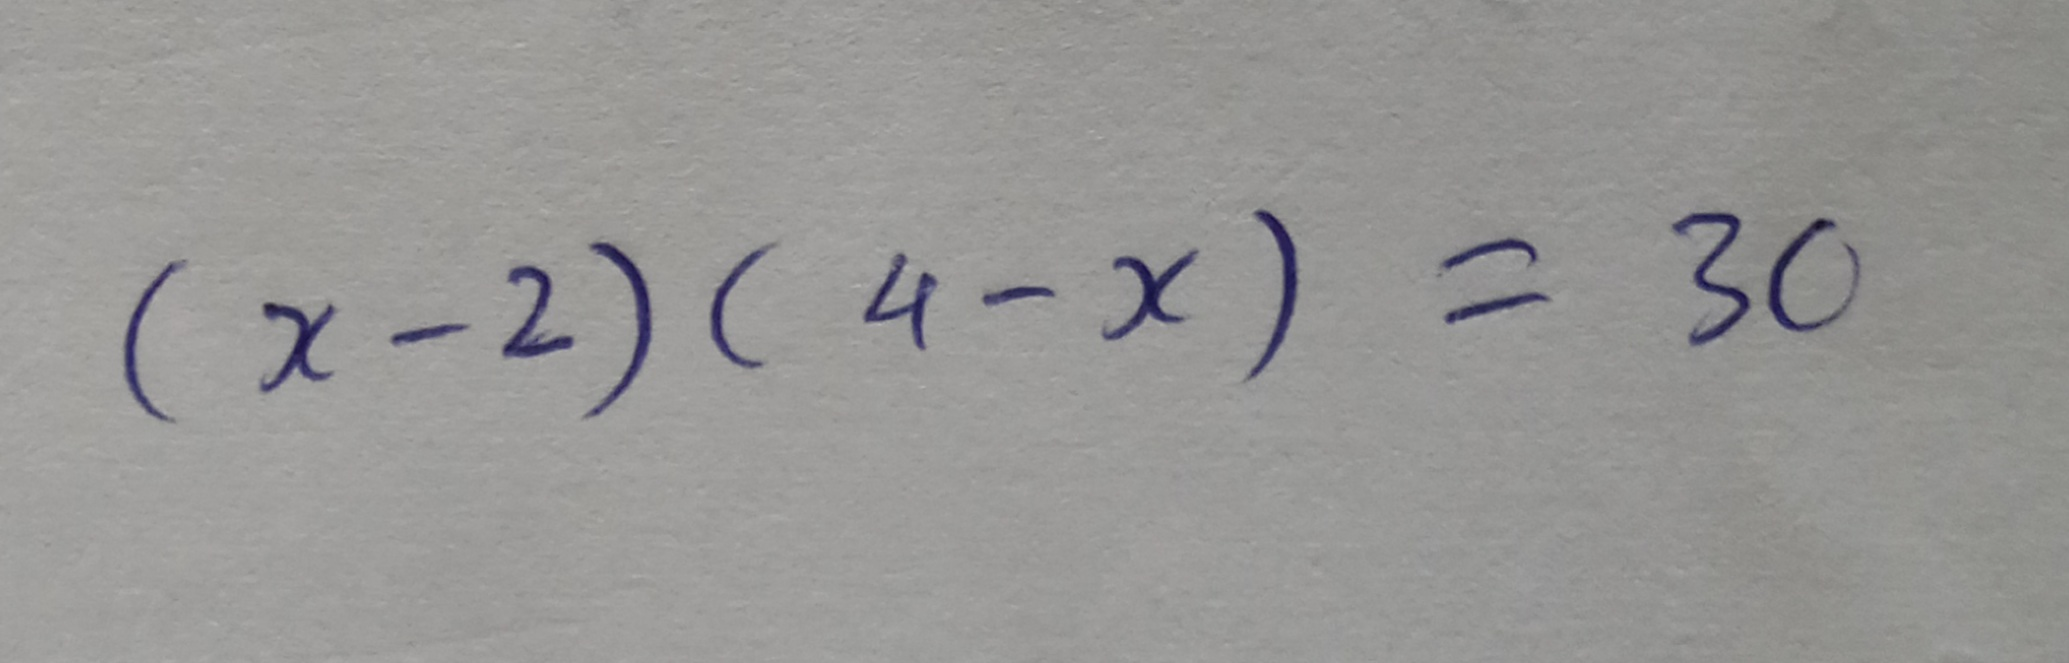 (x-2)(4-x) = 30